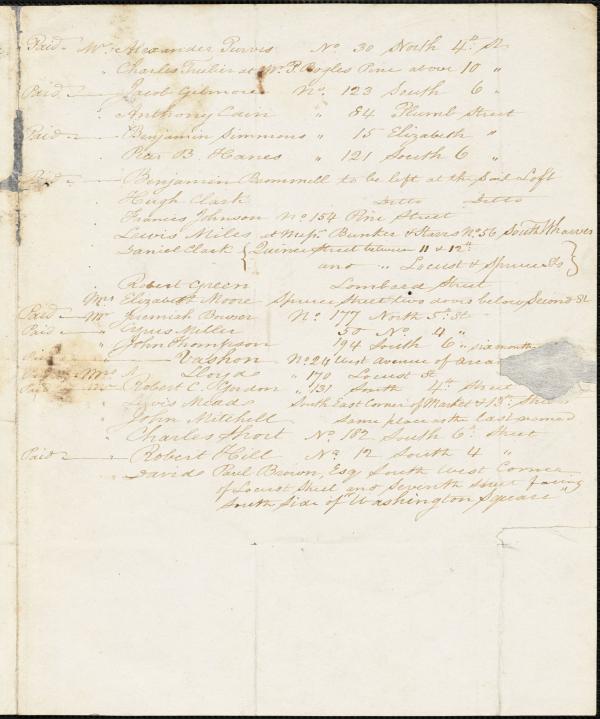 Paid — Mr. Alexander Purvis No 30 North 4th St
" Charles at Mr P. Bogles Pine above 10 "
Paid — Jacob Gilmore No. 123 South 6 "
" Anthony Cain " 84 Plumb Street
Paid — Benjamin Simmons " 15 Elizabeth "
" Peter B. Hanes " 121 South 6 "
Paid — Benjamin Bommell to be left at the Sail Loft
" Hugh Clark Ditto Ditto
" Francis Johnson No 154 Pine Street
" Lewis Miles at Messrs Bunker & Starrs No 56 South Wharves
" Daniel Clark { Quince Street between 11 & 12th
and " Locust & Spruce Sts }
" Robert Green Lombard Street
Mrs Elizabeth Moore Spruce Street two doors below Second St
Paid — Mr Jeremiah Bowser No. 177 North 5th St
Paid — " Cyrus Miller 50 No. 4 "
" John Thompson 194 South 6 " six months
Paid — Vashon No 24 West avenue of
Mrs Lloyds " 170 Locust St
Paid — Mr Robert C. Gordon " 131 South 4th Street
" Lewis Meads South East Corner of Market & 13th Street
" John Mitchell Same place as the last named
" Charles Short No. 182 South 6th Street
Paid — " Robert Hill No. 12 South 4 "
" David Paul Brown, Esq South West Corner
of Locust Street and Seventh Street facing
South Side of Washington Square "